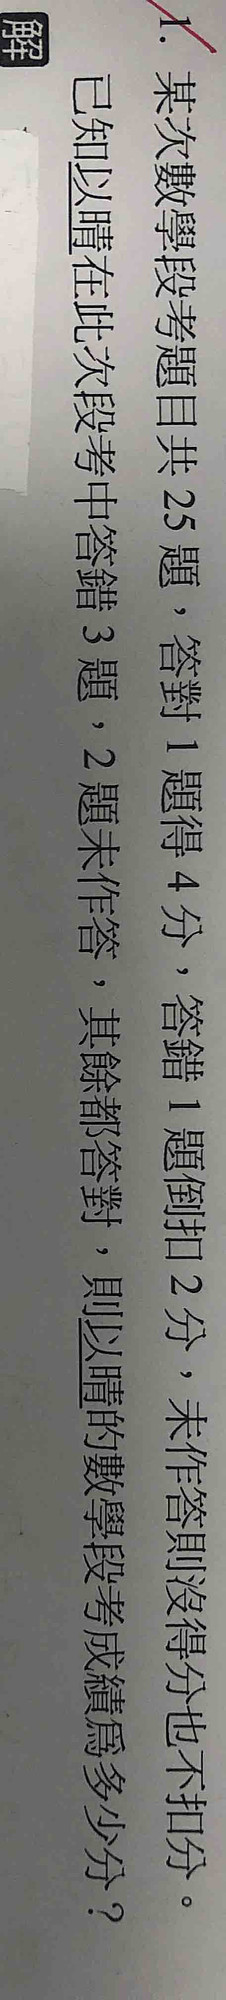 1. 某次數學段考題目共 25 題，答對 1 題得 4 分，答錯 1 題倒扣 2 分，未作答則沒得分也不扣分。
已知以晴在此次段考中答錯 3 題，2 題未作答，其餘都答對，則以晴的數學段考成績為多少分？
解